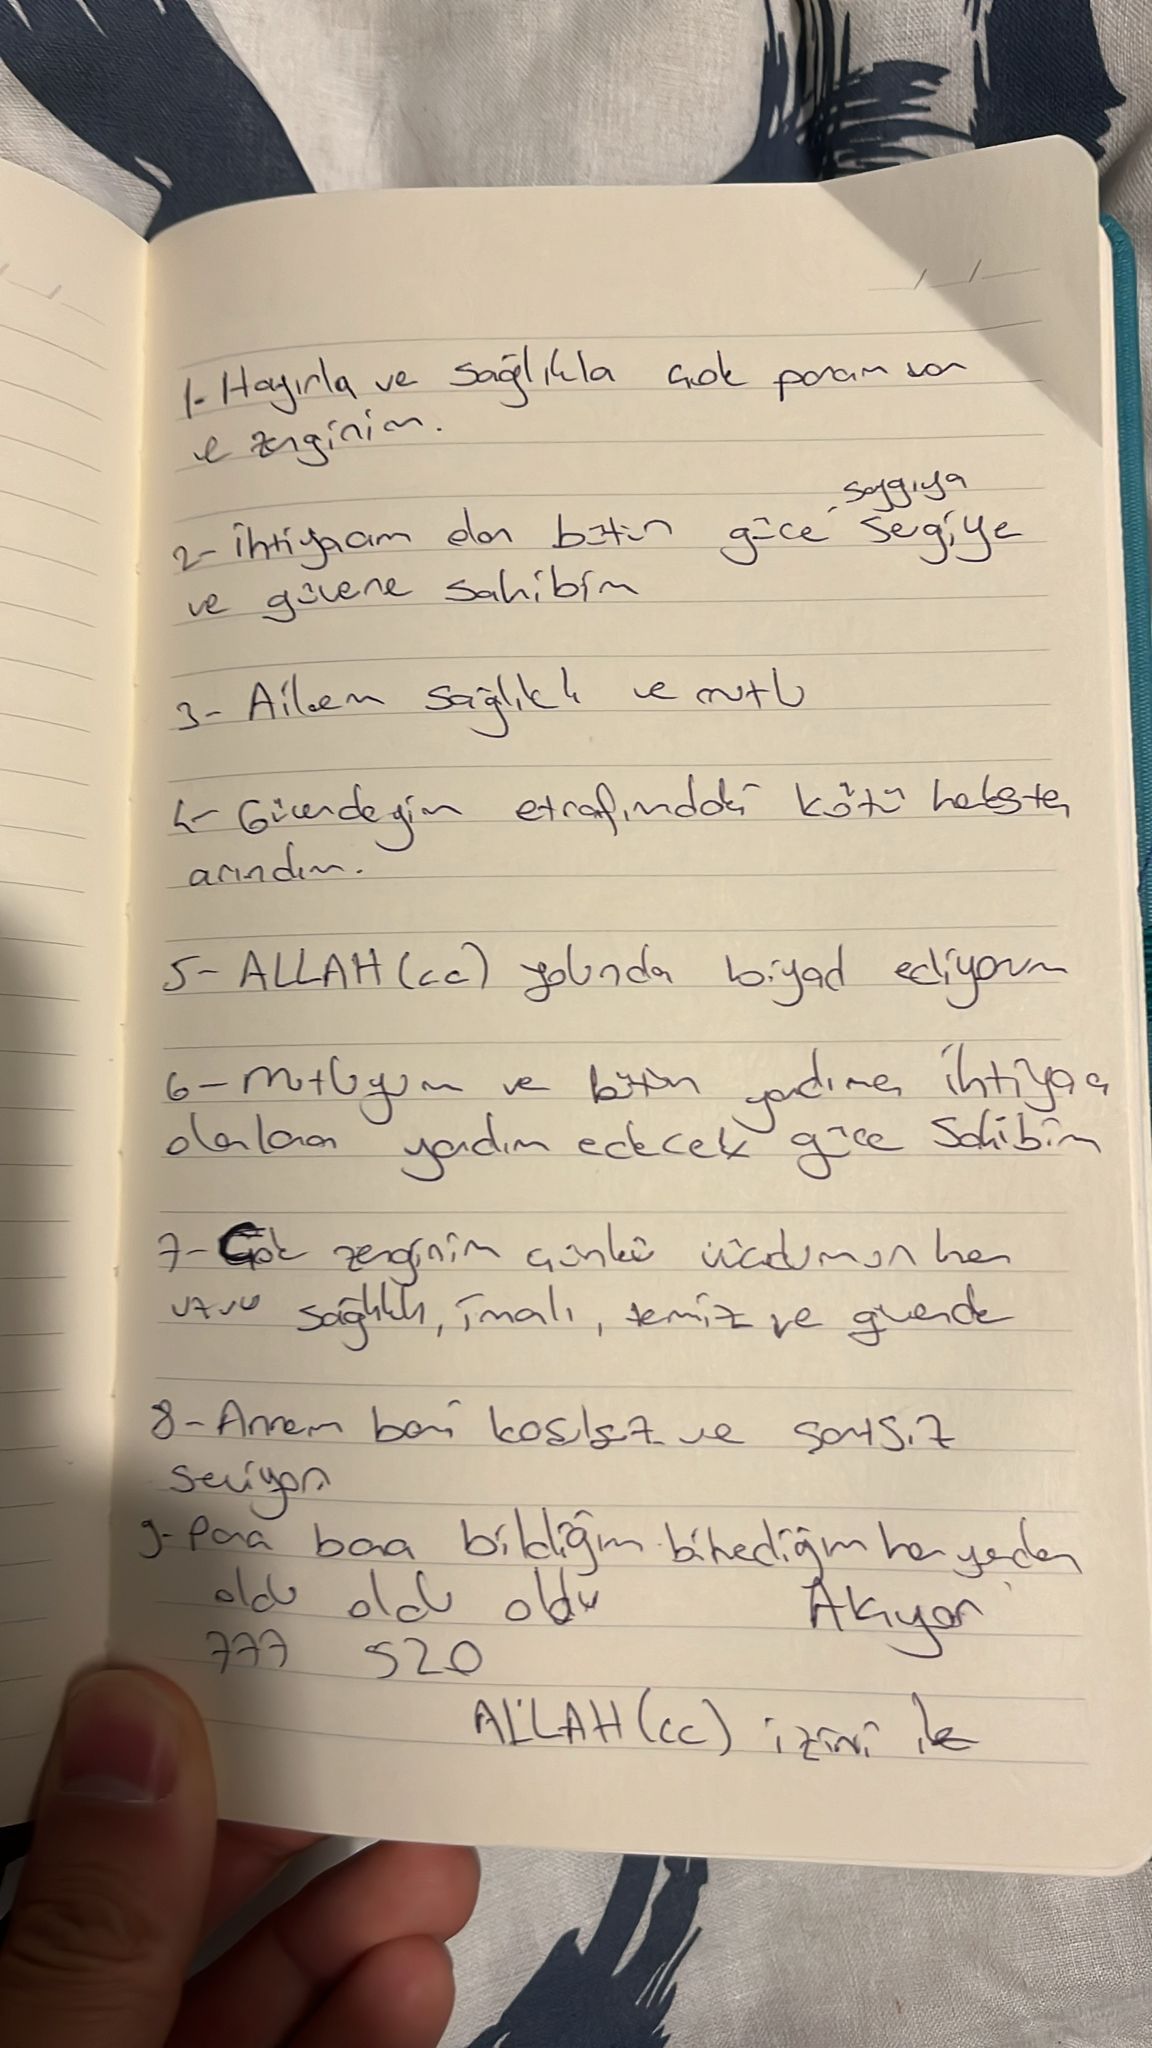 1- Hayırla ve sağlıkla çok param var
ve zenginim.
saygıya
2- İhtiyacım olan bütün güce sevgiye
ve güvene sahibim
3- Ailem sağlıklı ve mutlu
4- Güvendeyim etrafımdaki kötü herkesten
arındım.
5- ALLAH (cc) yolunda biyad ediyorum
6- Mutluyum ve bütün yardıma ihtiyacı
olanlara yardım edecek güce sahibim
7- Çok zenginim çünkü vücudumun her
uzvu sağlıklı, imalı, temiz ve güvende
8- Annem beni koşulsuz ve şartsız
seviyor
9- Para bana bildiğim bilmediğim her yerden
oldu oldu oldu Akıyor
777 520
ALLAH (cc) izini ile